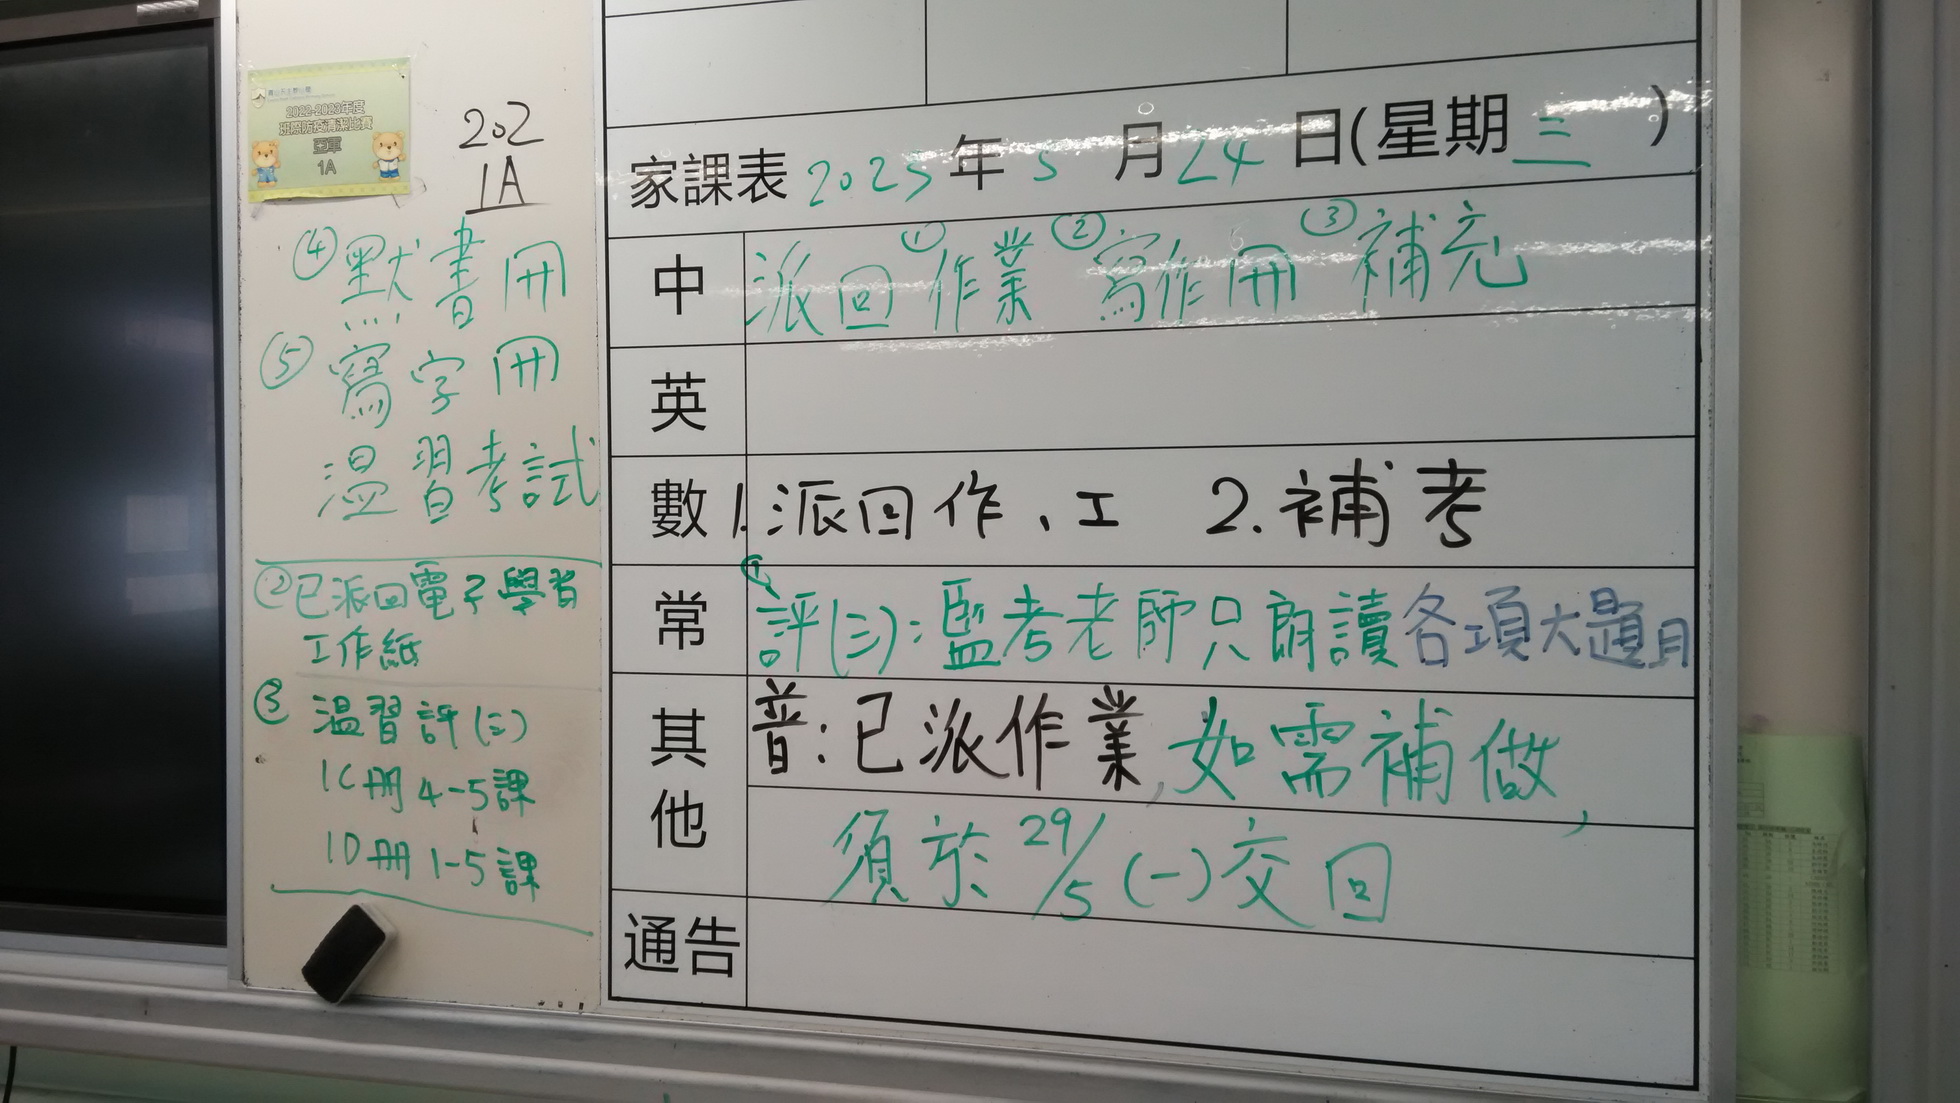 2022-2023年度
班際防疫清潔比賽
亞軍
1A
202
1A
④ 默書冊
⑤ 寫字冊
溫習考試
② 已派回電子學習
工作紙
③ 溫習評(三)
1C冊 4-5課
1D冊 1-5課
家課表 2023年5月24日(星期三)
中 派回 ①作業 ②寫作冊 ③補充
英
數 1.派回作、工 2.補考
常 ①評(三):監考老師只朗讀各項大題目
其他 普:已派作業,如需補做,
須於29/5(一)交回
通告